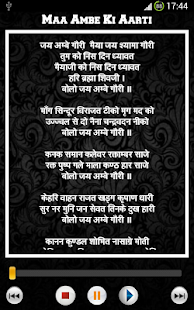 17:44
Maa Ambe Ki Aarti
जय अम्बे गौरी मैया जय श्यामा गौरी
तुम को निस दिन ध्यावत
मैयाजी को निस दिन ध्यावत
हरि ब्रह्मा शिवजी ।
बोलो जय अम्बे गौरी ॥
माँग सिन्दूर विराजत टीको मृग मद को
उज्ज्वल से दो नैना चन्द्रवदन नीको
बोलो जय अम्बे गौरी ॥
कनक समान कलेवर रक्ताम्बर साजे
रक्त पुष्प गले माला कण्ठ हार साजे
बोलो जय अम्बे गौरी ॥
केहरि वाहन राजत खड्ग कृपाण धारी
सुर नर मुनि जन सेवत तिनके दुख हारी
बोलो जय अम्बे गौरी ॥
कानन कुण्डल शोभित नासाग्रे मोती